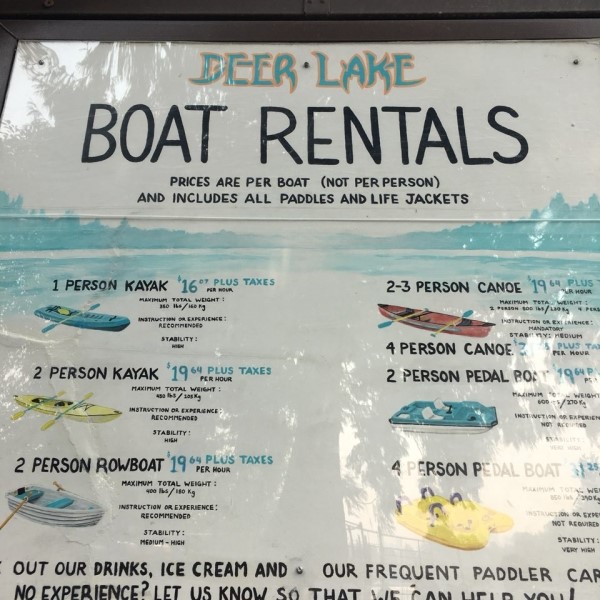 DEER LAKE
BOAT RENTALS
PRICES ARE PER BOAT (NOT PER PERSON)
AND INCLUDES ALL PADDLES AND LIFE JACKETS
1 PERSON KAYAK $16.07 PLUS TAXES
PER HOUR
MAXIMUM TOTAL WEIGHT:
350 lbs/160 kg
INSTRUCTION OR EXPERIENCE:
RECOMMENDED
STABILITY:
HIGH
2 PERSON KAYAK $19.64 PLUS TAXES
PER HOUR
MAXIMUM TOTAL WEIGHT:
450 lbs/205 kg
INSTRUCTION OR EXPERIENCE:
RECOMMENDED
STABILITY:
HIGH
2 PERSON ROWBOAT $19.64 PLUS TAXES
PER HOUR
MAXIMUM TOTAL WEIGHT:
400 lbs/180 kg
INSTRUCTION OR EXPERIENCE:
RECOMMENDED
STABILITY:
MEDIUM - HIGH
2-3 PERSON CANOE $19.64 PLUS
PER HOUR
MAXIMUM TOTAL WEIGHT:
INSTRUCTION OR EXPERIENCE:
MANDATORY
STABILITY: MEDIUM
4 PERSON CANOE PLUS
PER HOUR
2 PERSON PEDAL BOAT $19.64
PER HOUR
MAXIMUM TOTAL
600 lbs/270 kg
INSTRUCTION OR
NOT REQUIRED
STABILITY:
VERY HIGH
4 PERSON PEDAL BOAT
MAXIMUM TOTAL
INSTRUCTION OR
NOT REQUIRED
STABILITY:
VERY HIGH
OUT OUR DRINKS, ICE CREAM AND OUR FREQUENT PADDLER
NO EXPERIENCE? LET US KNOW SO THAT WE CAN HELP YOU!